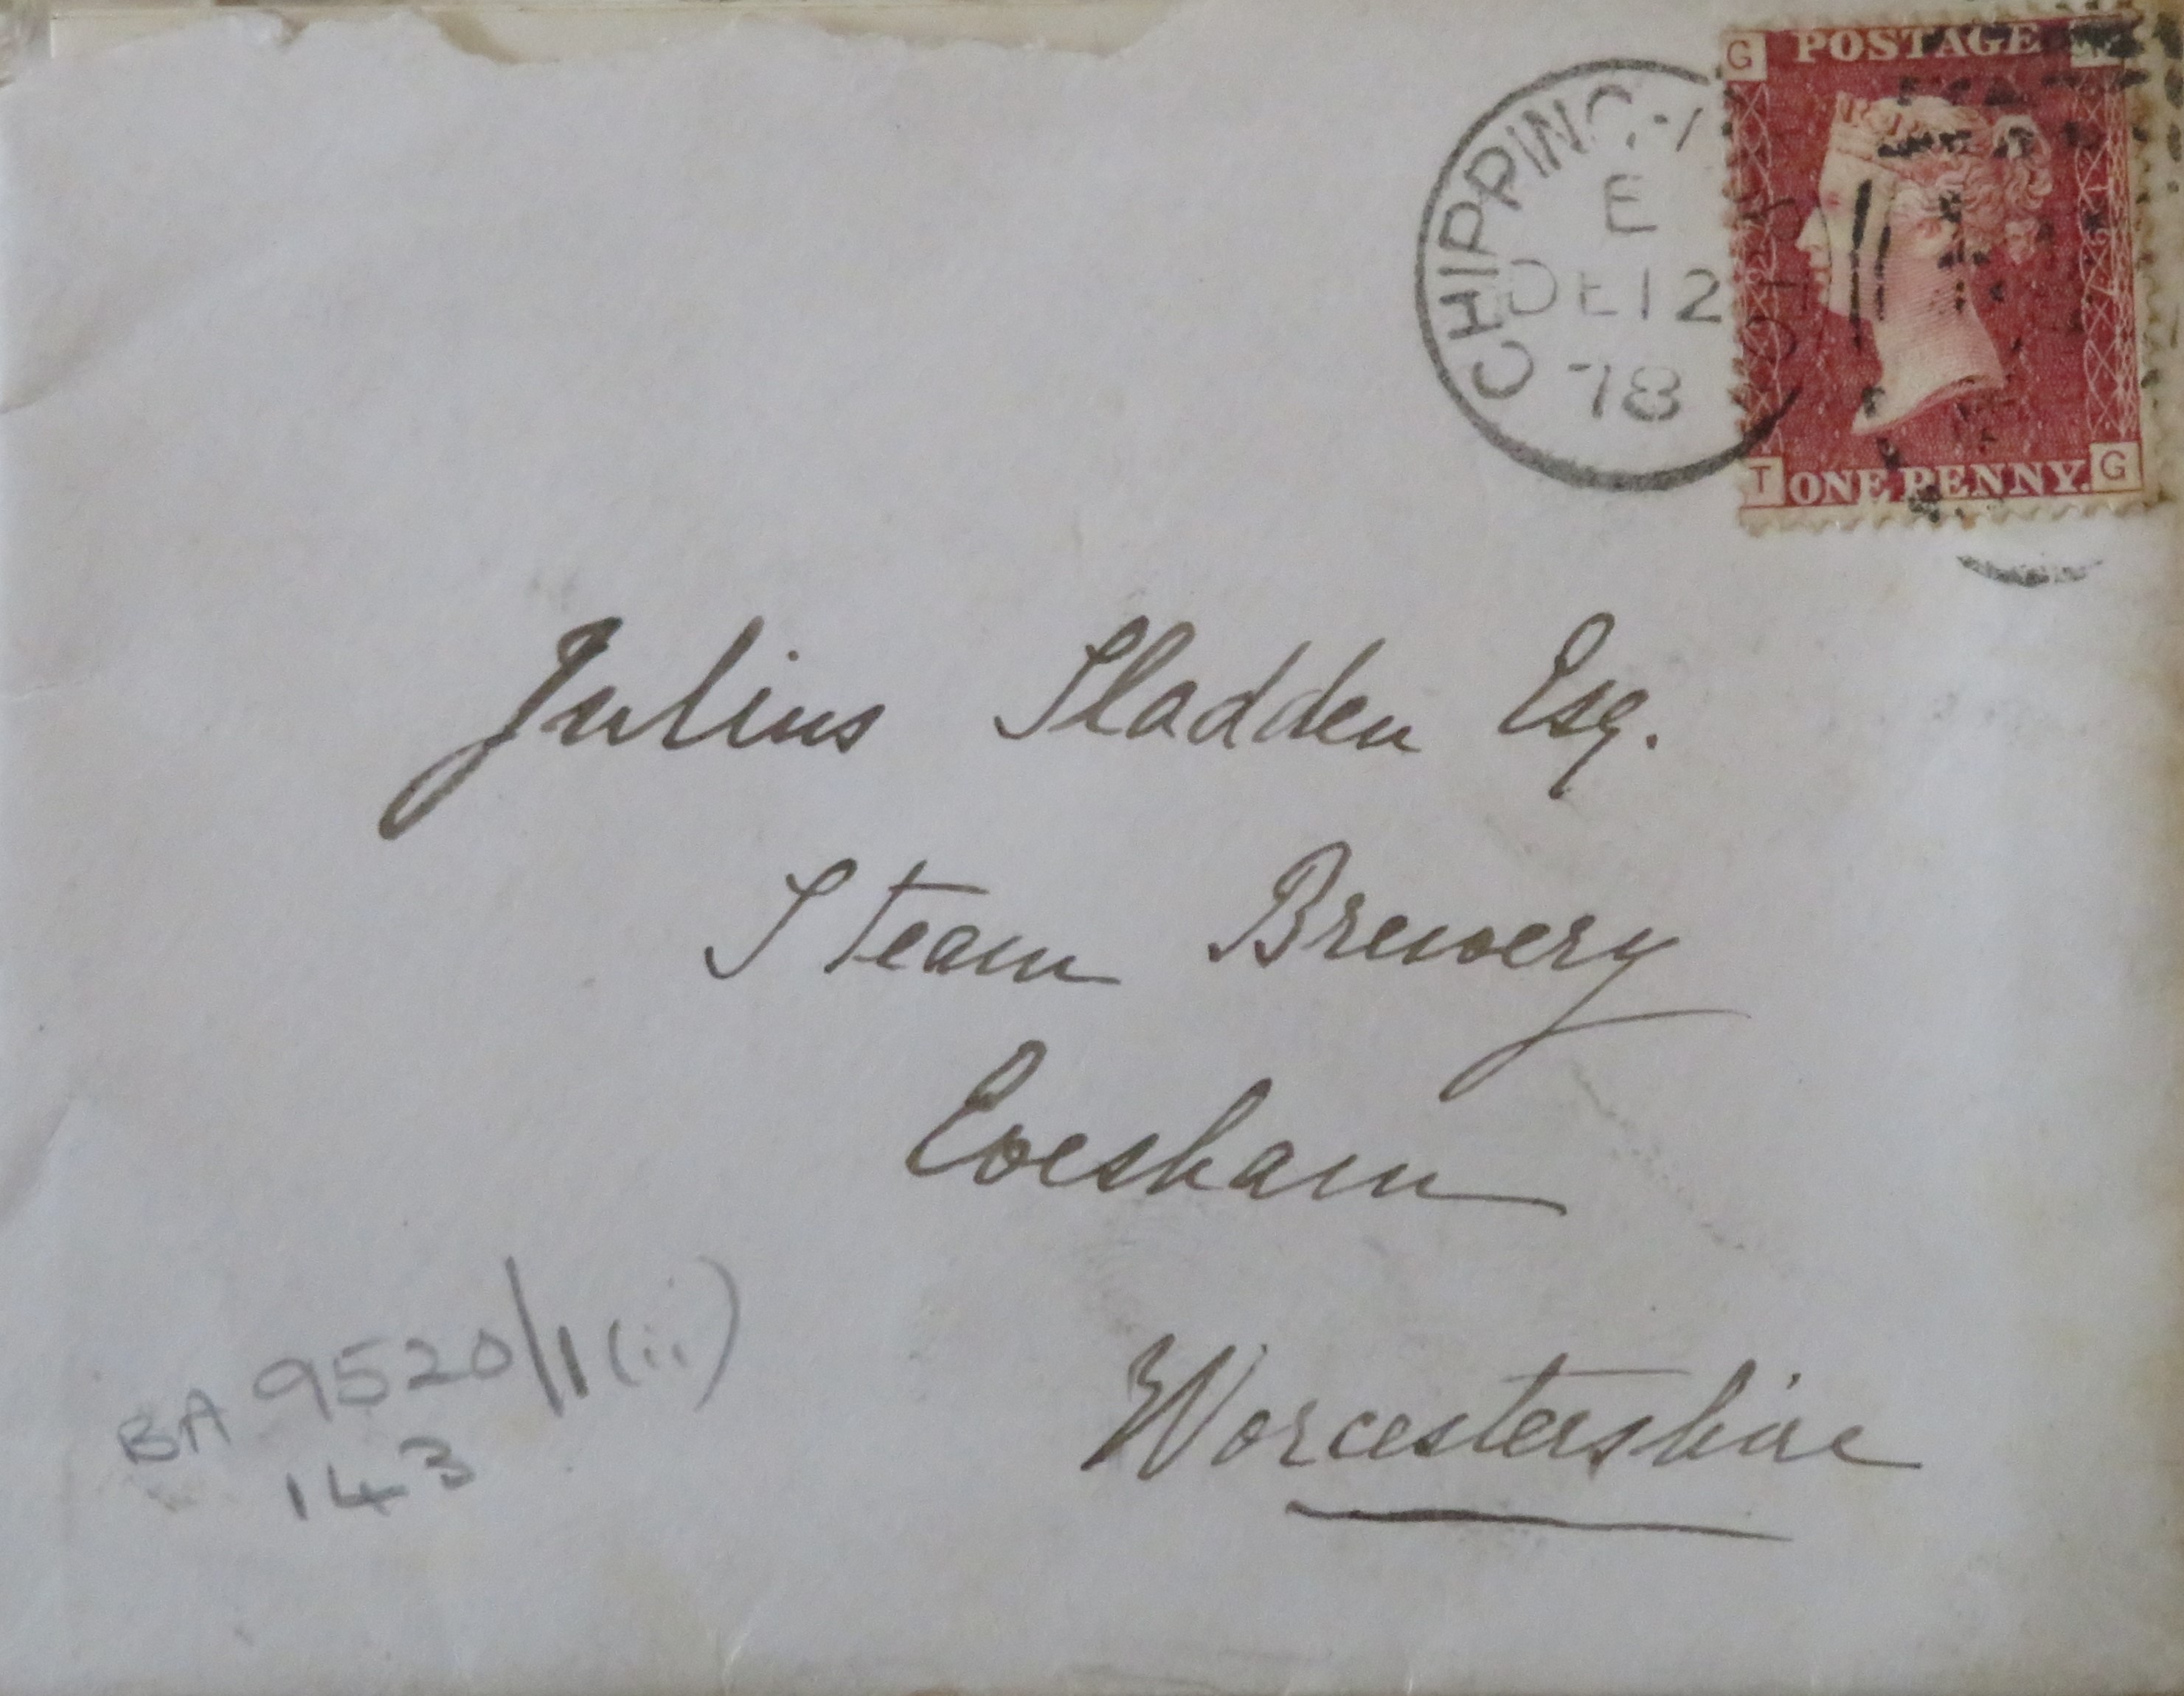 G POSTAGE
CHIPPING
E
DE 12
78
T ONE PENNY. G
Julius Sladden Esq.
Steam Brewery
Evesham
Worcestershire
BA 9520/1(ii)
143